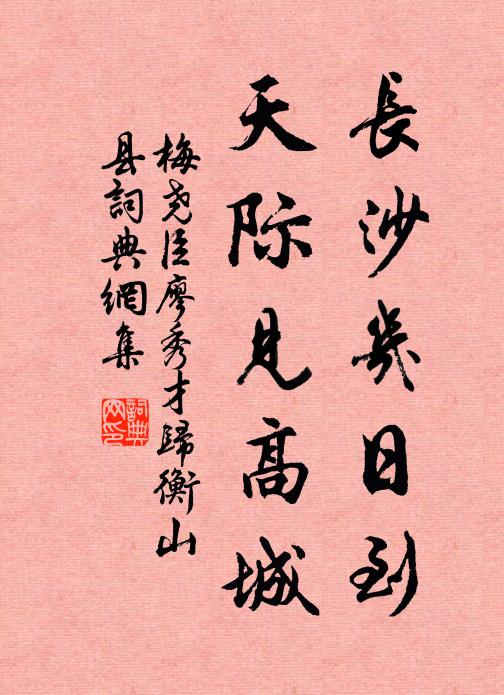 長沙幾日到
天际見高城
梅尧臣廖秀才歸衡山
县詞典網集
詞典网印